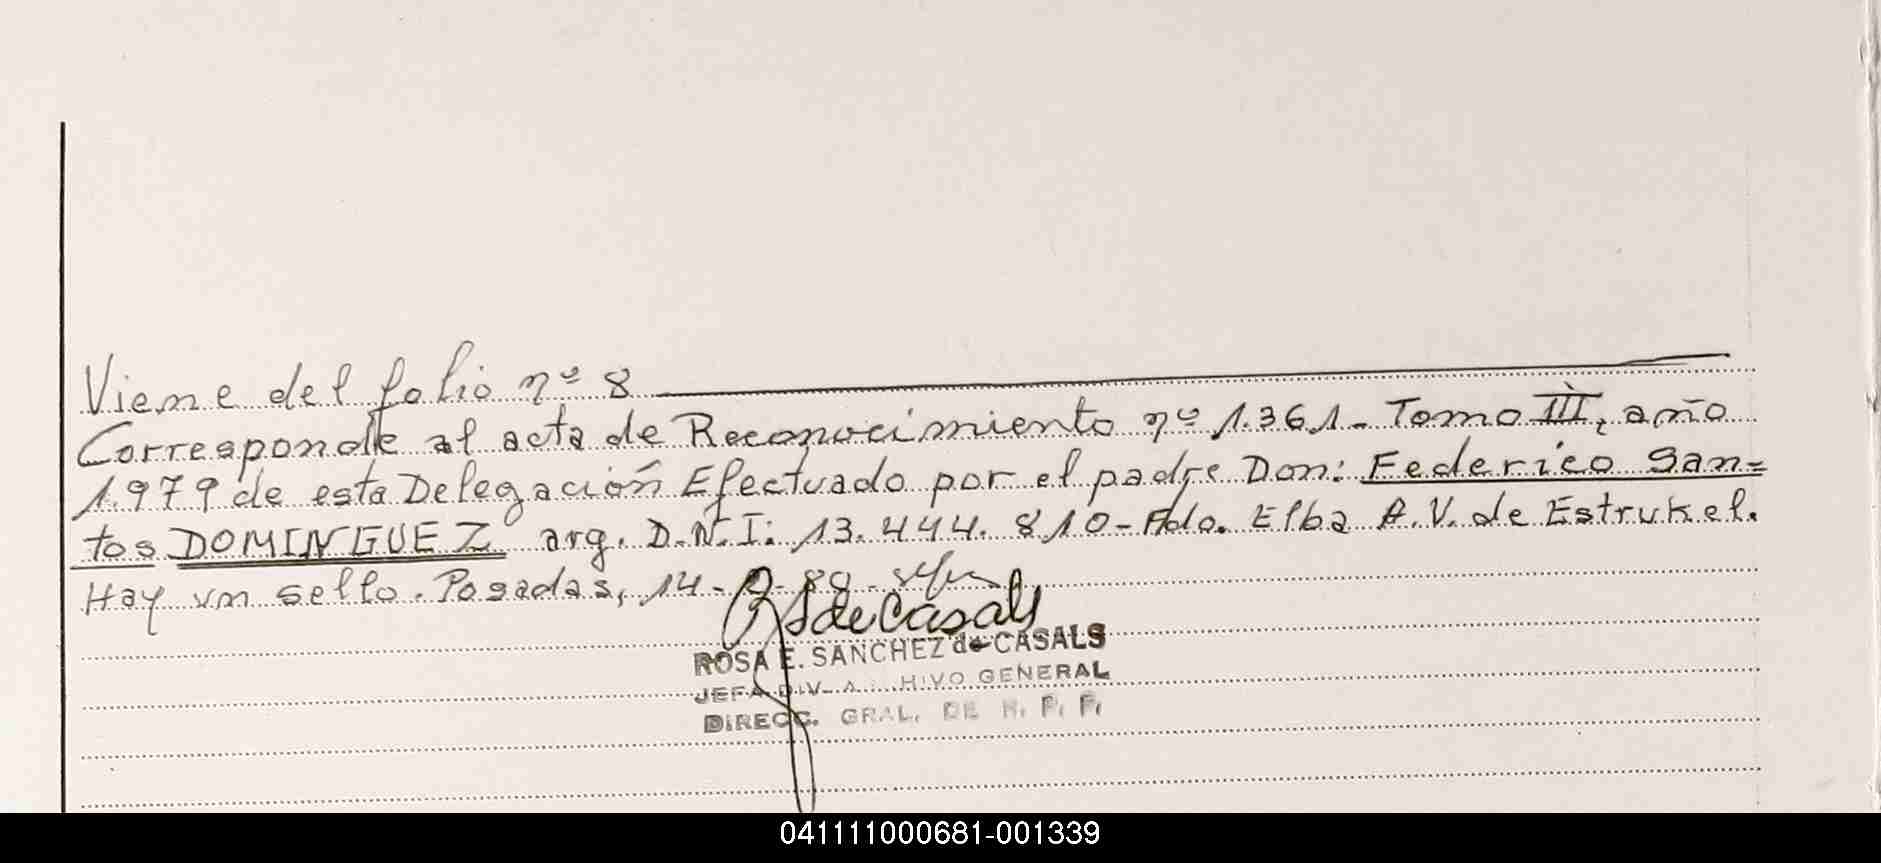 Viene del folio nº 8
Corresponde al acta de Reconocimiento nº 1.361 - Tomo III, año
1.979 de esta Delegación Efectuado por el padre Don: Federico San=
tos DOMINGUEZ arg. D.N.I: 13.444.810 - Fdo. Elba A. V. de Estrukel.
Hay un sello. Posadas, 14-
RS de Casals
ROSA E. SANCHEZ de CASALS
JEFA DIV. A HIVO GENERAL
DIRECC. GRAL. DE R. P. P.
041111000681-001339